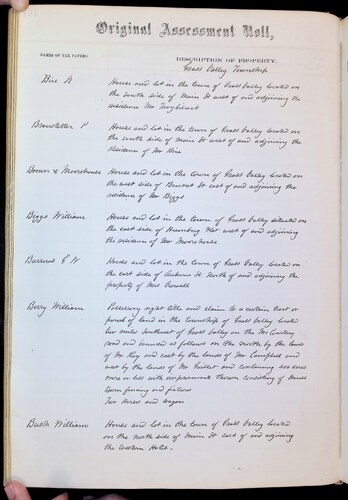 Original Assessment Roll,
NAMES OF TAX PAYERS.
DESCRIPTION OF PROPERTY.
Grass Valley Township
House and lot in the town of Grass Valley located on
the South side of Main St west of and adjoining the
residence Mr
Brownstetter P
House and lot in the town of Grass Valley located on
the north side of Main St west of and adjoining the
Residence of Mr
Brown & Moorehouse
House and lot in the town of Grass Valley located on
the west side of Bennet St east of and adjoining the
residence of Mr Biggs
Biggs William
House and lot in the town of Grass Valley situated on
the east side of Humbug Flat west of and adjoining
the residence of Mr Moorehouse
House and lot in the town of Grass Valley located on
the east side of Auburn St North of and adjoining the
property of Mrs
Berry William
Possessory right title and claim to a certain lot or
parcel of land in the Township of Grass Valley located
two miles Southwest of Grass Valley on the
road and bounded as follows on the north by the lands
of Mr Key and east by the lands of Mr Campbell and
west by the lands of Mr and containing
more or less with improvements thereon consisting of House
Barn fencing and fixtures
Two Horses and wagon
Bush William
House and lot in the town of Grass Valley located
on the north side of Main St east of and adjoining
the Western Hotel.